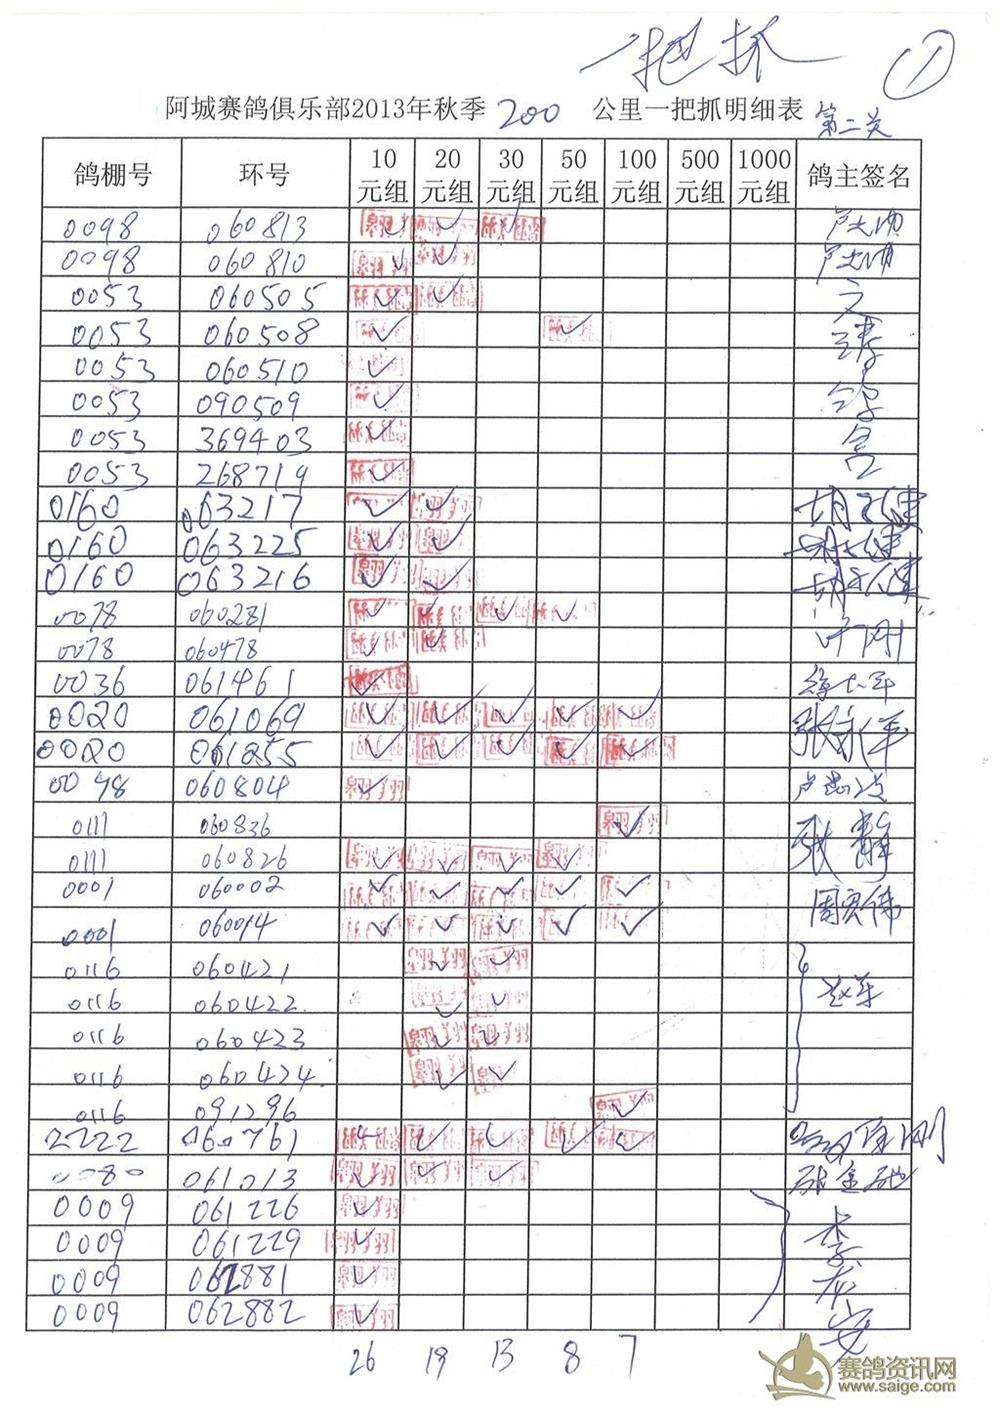 一把抓 ①
阿城赛鸽俱乐部2013年秋季 200 公里一把抓明细表 第二关
鸽棚号 环号 10元组 20元组 30元组 50元组 100元组 500元组 1000元组 鸽主签名
0098 060813 ✓ ✓ ✓
0098 060810 ✓ ✓
0053 060505 ✓ ✓ 文
0053 060508 ✓ ✓
0053 060510 ✓
0053 090509 ✓
0053 369403 ✓
0053 268719 ✓
0160 063217 ✓ ✓
0160 063225 ✓ ✓
0160 063216 ✓ ✓
0078 060281 ✓ ✓ ✓ ✓
0078 060478 ✓ ✓ 叶刚
0036 061461 ✓
0020 061069 ✓ ✓ ✓ ✓ ✓ 张永军
0020 061255 ✓ ✓ ✓ ✓ ✓
0098 060804 ✓
0111 060836 ✓ 张静
0111 060826 ✓ ✓ ✓ ✓
0001 060002 ✓ ✓ ✓ ✓ ✓
0001 060014 ✓ ✓ ✓ ✓ ✓
0116 060421 ✓ ✓
0116 060422 ✓ ✓ 赵军
0116 060423 ✓ ✓
0116 060424 ✓ ✓
0116 091296 ✓
2222 060761 ✓ ✓ ✓ ✓ ✓
0080 061013 ✓ ✓ ✓
0009 061226 ✓
0009 061229 ✓ 李
0009 062881 ✓
0009 062882 ✓ 安
26 19 13 8 7
赛鸽资讯网
www.saige.com